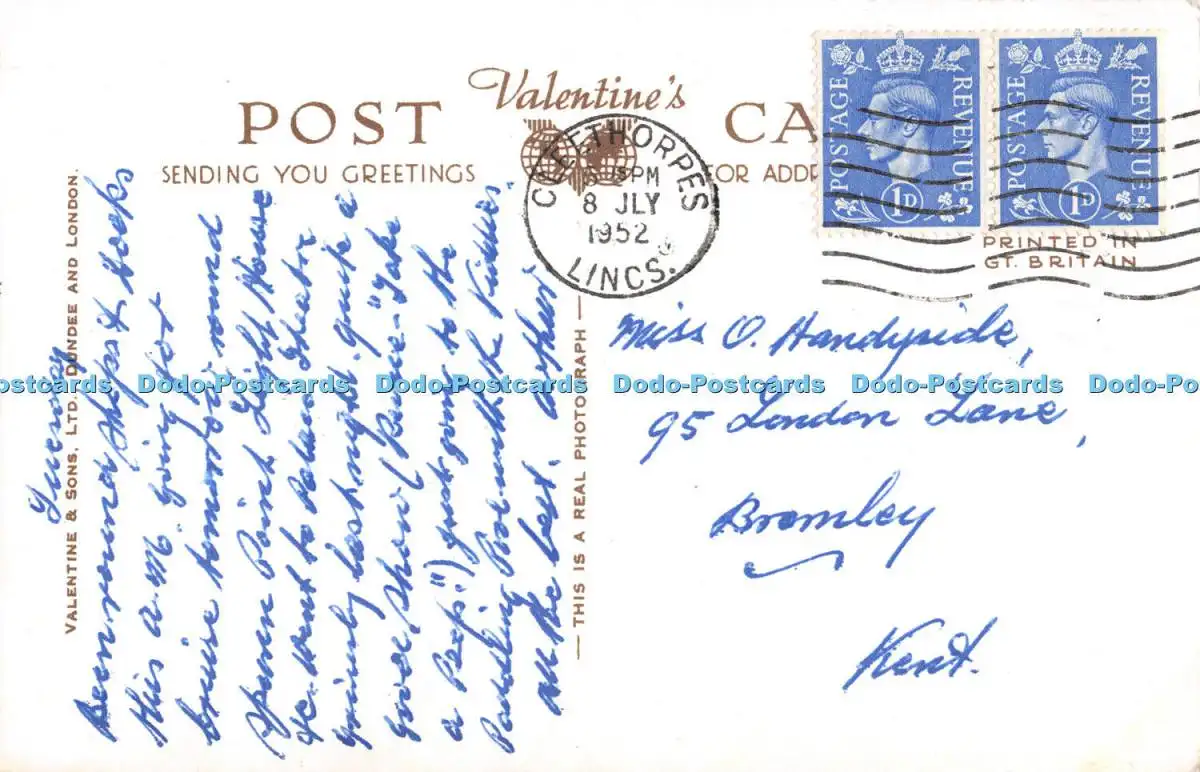 POST Valentine's CA
SENDING YOU GREETINGS FOR ADDR
CLEETHORPES
15PM
8 JLY
1952
LINCS.
POSTAGE REVENUE 1D
POSTAGE REVENUE 1D
PRINTED IN
GT. BRITAIN
VALENTINE & SONS, LTD. DUNDEE AND LONDON.
Tuesday
Been round shops & docks
this a.m. going for
cruise tomorrow round
Spurn Point Light House
We went to Palace Theatre
Grimsby last night quite a
good show (Revue - "Take
a Peep.") Just going to the
Paddling Pool with the kiddies.
All the best. Arthur
— THIS IS A REAL PHOTOGRAPH —
Miss O. Handyside,
95 London Lane,
Bromley
Kent.
Dodo-Postcards Dodo-Postcards Dodo-Postcards Dodo-Postcards Dodo-Postcards Dodo-Postcards